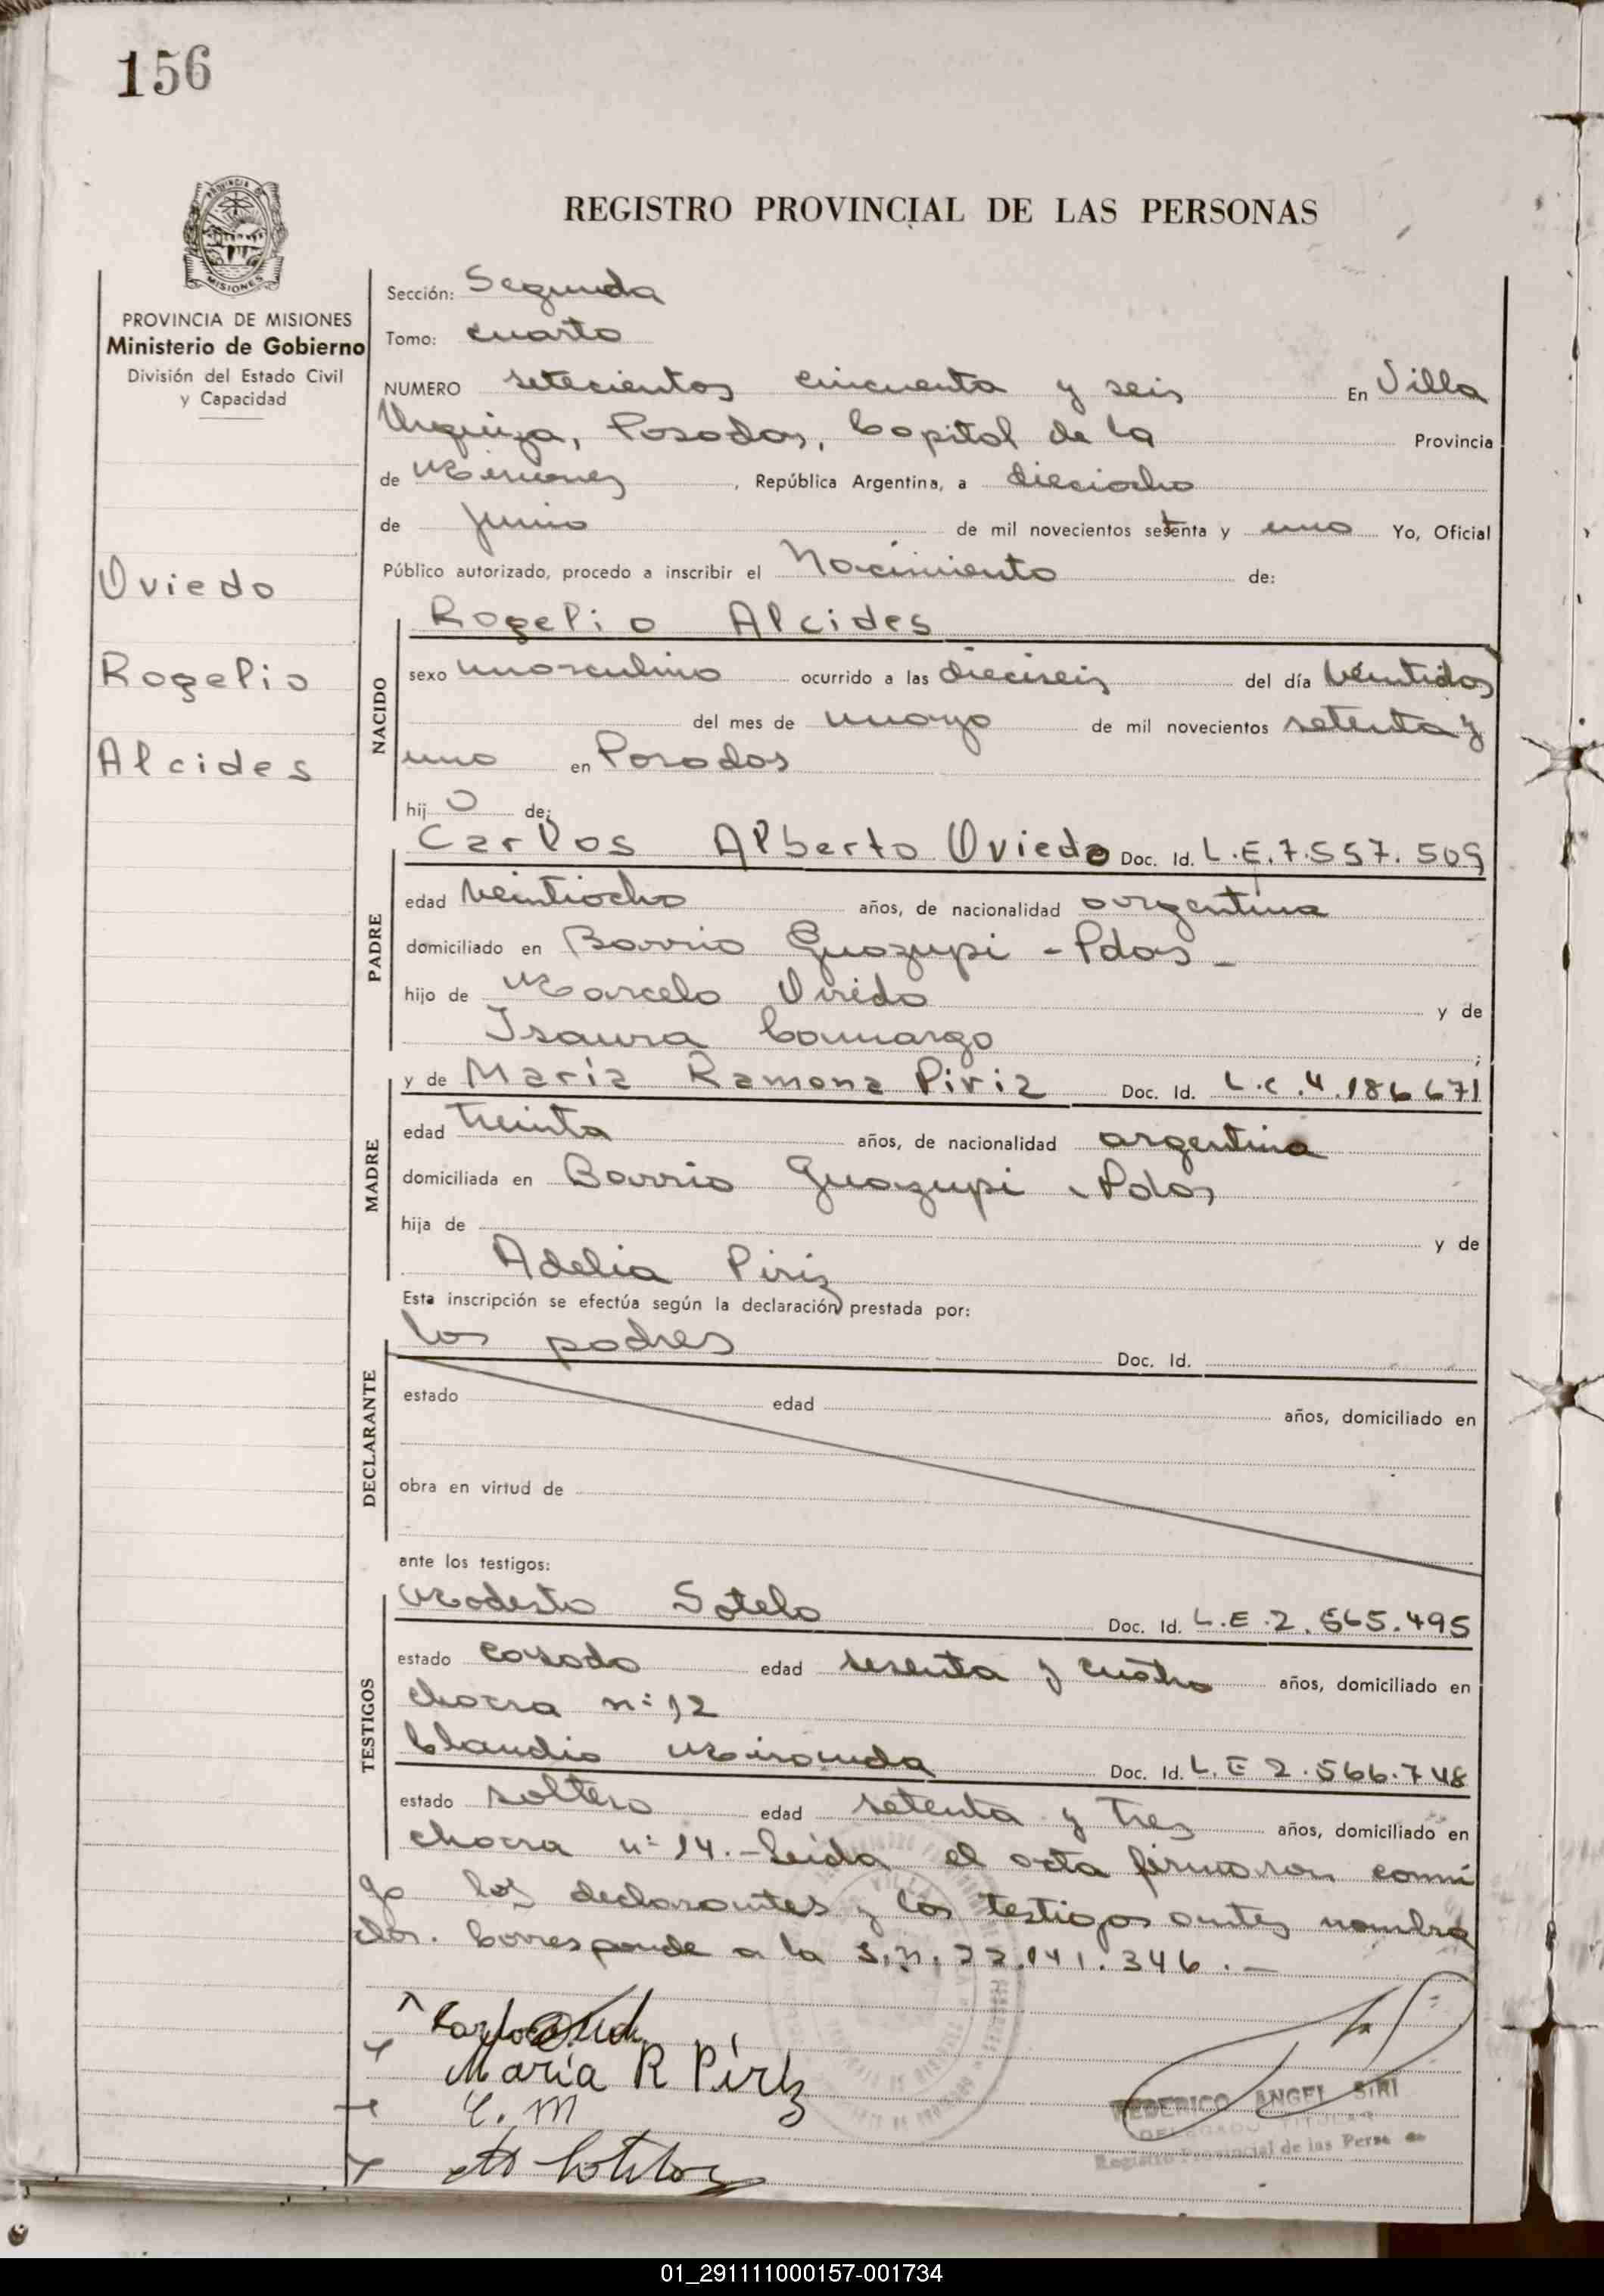 156
PROVINCIA DE
MISIONES
REGISTRO PROVINCIAL DE LAS PERSONAS
PROVINCIA DE MISIONES
Ministerio de Gobierno
División del Estado Civil
y Capacidad
Oviedo
Rogelio
Alcides
Sección: Segunda
Tomo: cuarto
NUMERO setecientos cincuenta y seis En Villa
Urquiza, Posadas, Capital de la Provincia
de Misiones, República Argentina, a dieciocho
de Junio de mil novecientos setenta y uno Yo, Oficial
Público autorizado, procedo a inscribir el Nacimiento de:
NACIDO
Rogelio Alcides
sexo masculino ocurrido a las dieciseis del día veintidos
del mes de mayo de mil novecientos setenta y
uno en Posadas
hijo de:
PADRE
Carlos Alberto Oviedo Doc. Id. L.E. 7.557.509
edad veintiocho años, de nacionalidad argentina
domiciliado en Barrio Guazupi - Pdas -
hijo de Marcelo Oviedo y de
Isaura Camargo ;
MADRE
y de María Ramona Piriz Doc. Id. L.C. 4.186671
edad treinta años, de nacionalidad argentina
domiciliada en Barrio Guazupi - Pdas
hija de y de
Adelia Piriz
Esta inscripción se efectúa según la declaración prestada por:
DECLARANTE
los padres Doc. Id.
estado edad años, domiciliado en
obra en virtud de
ante los testigos:
TESTIGOS
Modesto Sotelo Doc. Id. L.E. 2.565.495
estado casado edad sesenta y cuatro años, domiciliado en
chacra n: 12
Claudio Miranda Doc. Id. L.E 2.566.748
estado soltero edad setenta y tres años, domiciliado en
chacra n: 14.- Leida el acta firmaron conmi
go los declarantes y los testigos antes nombra
dos. Corresponde a la S.N. 22.141.346.-
María R Píriz
C. M
FEDERICO ANGEL SIRI
DELEGADO TITULAR
Registro Provincial de las Personas
01_291111000157-001734